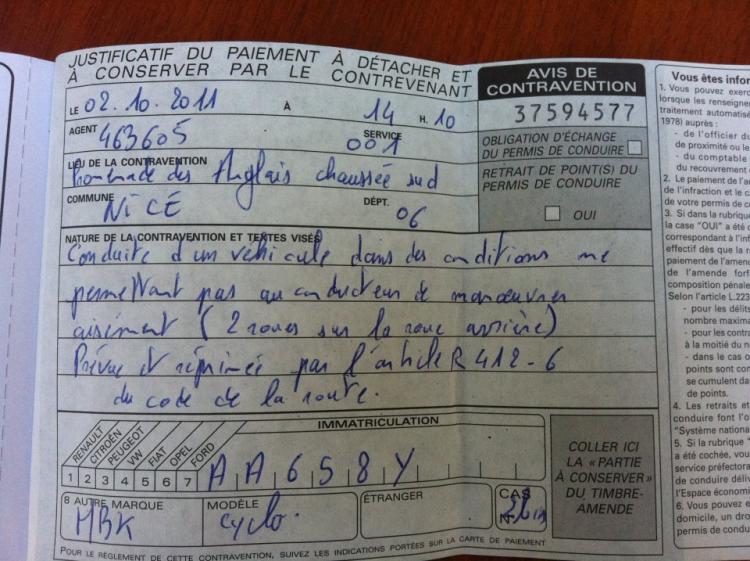 JUSTIFICATIF DU PAIEMENT À DÉTACHER ET
À CONSERVER PAR LE CONTREVENANT
LE 02.10.2011 À 14 H. 10
AGENT 463605 SERVICE 001
LIEU DE LA CONTRAVENTION
Promenade des Anglais chaussée sud
COMMUNE NICE DÉPT. 06
NATURE DE LA CONTRAVENTION ET TEXTES VISÉS
Conduite d'un véhicule dans des conditions ne
permettant pas au conducteur de manœuvrer
aisément (2 roues sur la roue arrière)
Prévue et réprimée par l'article R 412-6
du code de la route.
AVIS DE
CONTRAVENTION
37594577
OBLIGATION D'ÉCHANGE
DU PERMIS DE CONDUIRE
RETRAIT DE POINT(S) DU
PERMIS DE CONDUIRE
OUI
IMMATRICULATION
RENAULT CITROËN PEUGEOT VW FIAT OPEL FORD
1 2 3 4 5 6 7 AA658Y
8 AUTRE MARQUE MODÈLE ÉTRANGER CAS
MBK cyclo. N°
COLLER ICI
LA « PARTIE
À CONSERVER »
DU TIMBRE-
AMENDE
POUR LE RÈGLEMENT DE CETTE CONTRAVENTION, SUIVEZ LES INDICATIONS PORTÉES SUR LA CARTE DE PAIEMENT
Vous êtes infor
1. Vous pouvez exerc
lorsque les renseigne
traitement automatisé
1978) auprès :
- de l'officier du
de proximité ou le
- du comptable
du recouvrement
2. Le paiement de l'a
de l'infraction et le c
de votre permis de co
3. Si dans la rubriqu
la case "OUI" a été c
correspondant à l'in
effectif dès que la r
paiement de l'amend
de l'amende forf
composition pénale
Selon l'article L.223
- pour les délits
nombre maxima
- pour les contra
à la moitié du n
- dans le cas o
points sont con
se cumulent da
de points.
4. Les retraits et
conduire font l'o
"Système nationa
5. Si la rubrique "
a été cochée, vou
service préfectora
de conduire déliv
l'Espace économ
6. Vous pouvez e
domicile, un dro
permis de condu